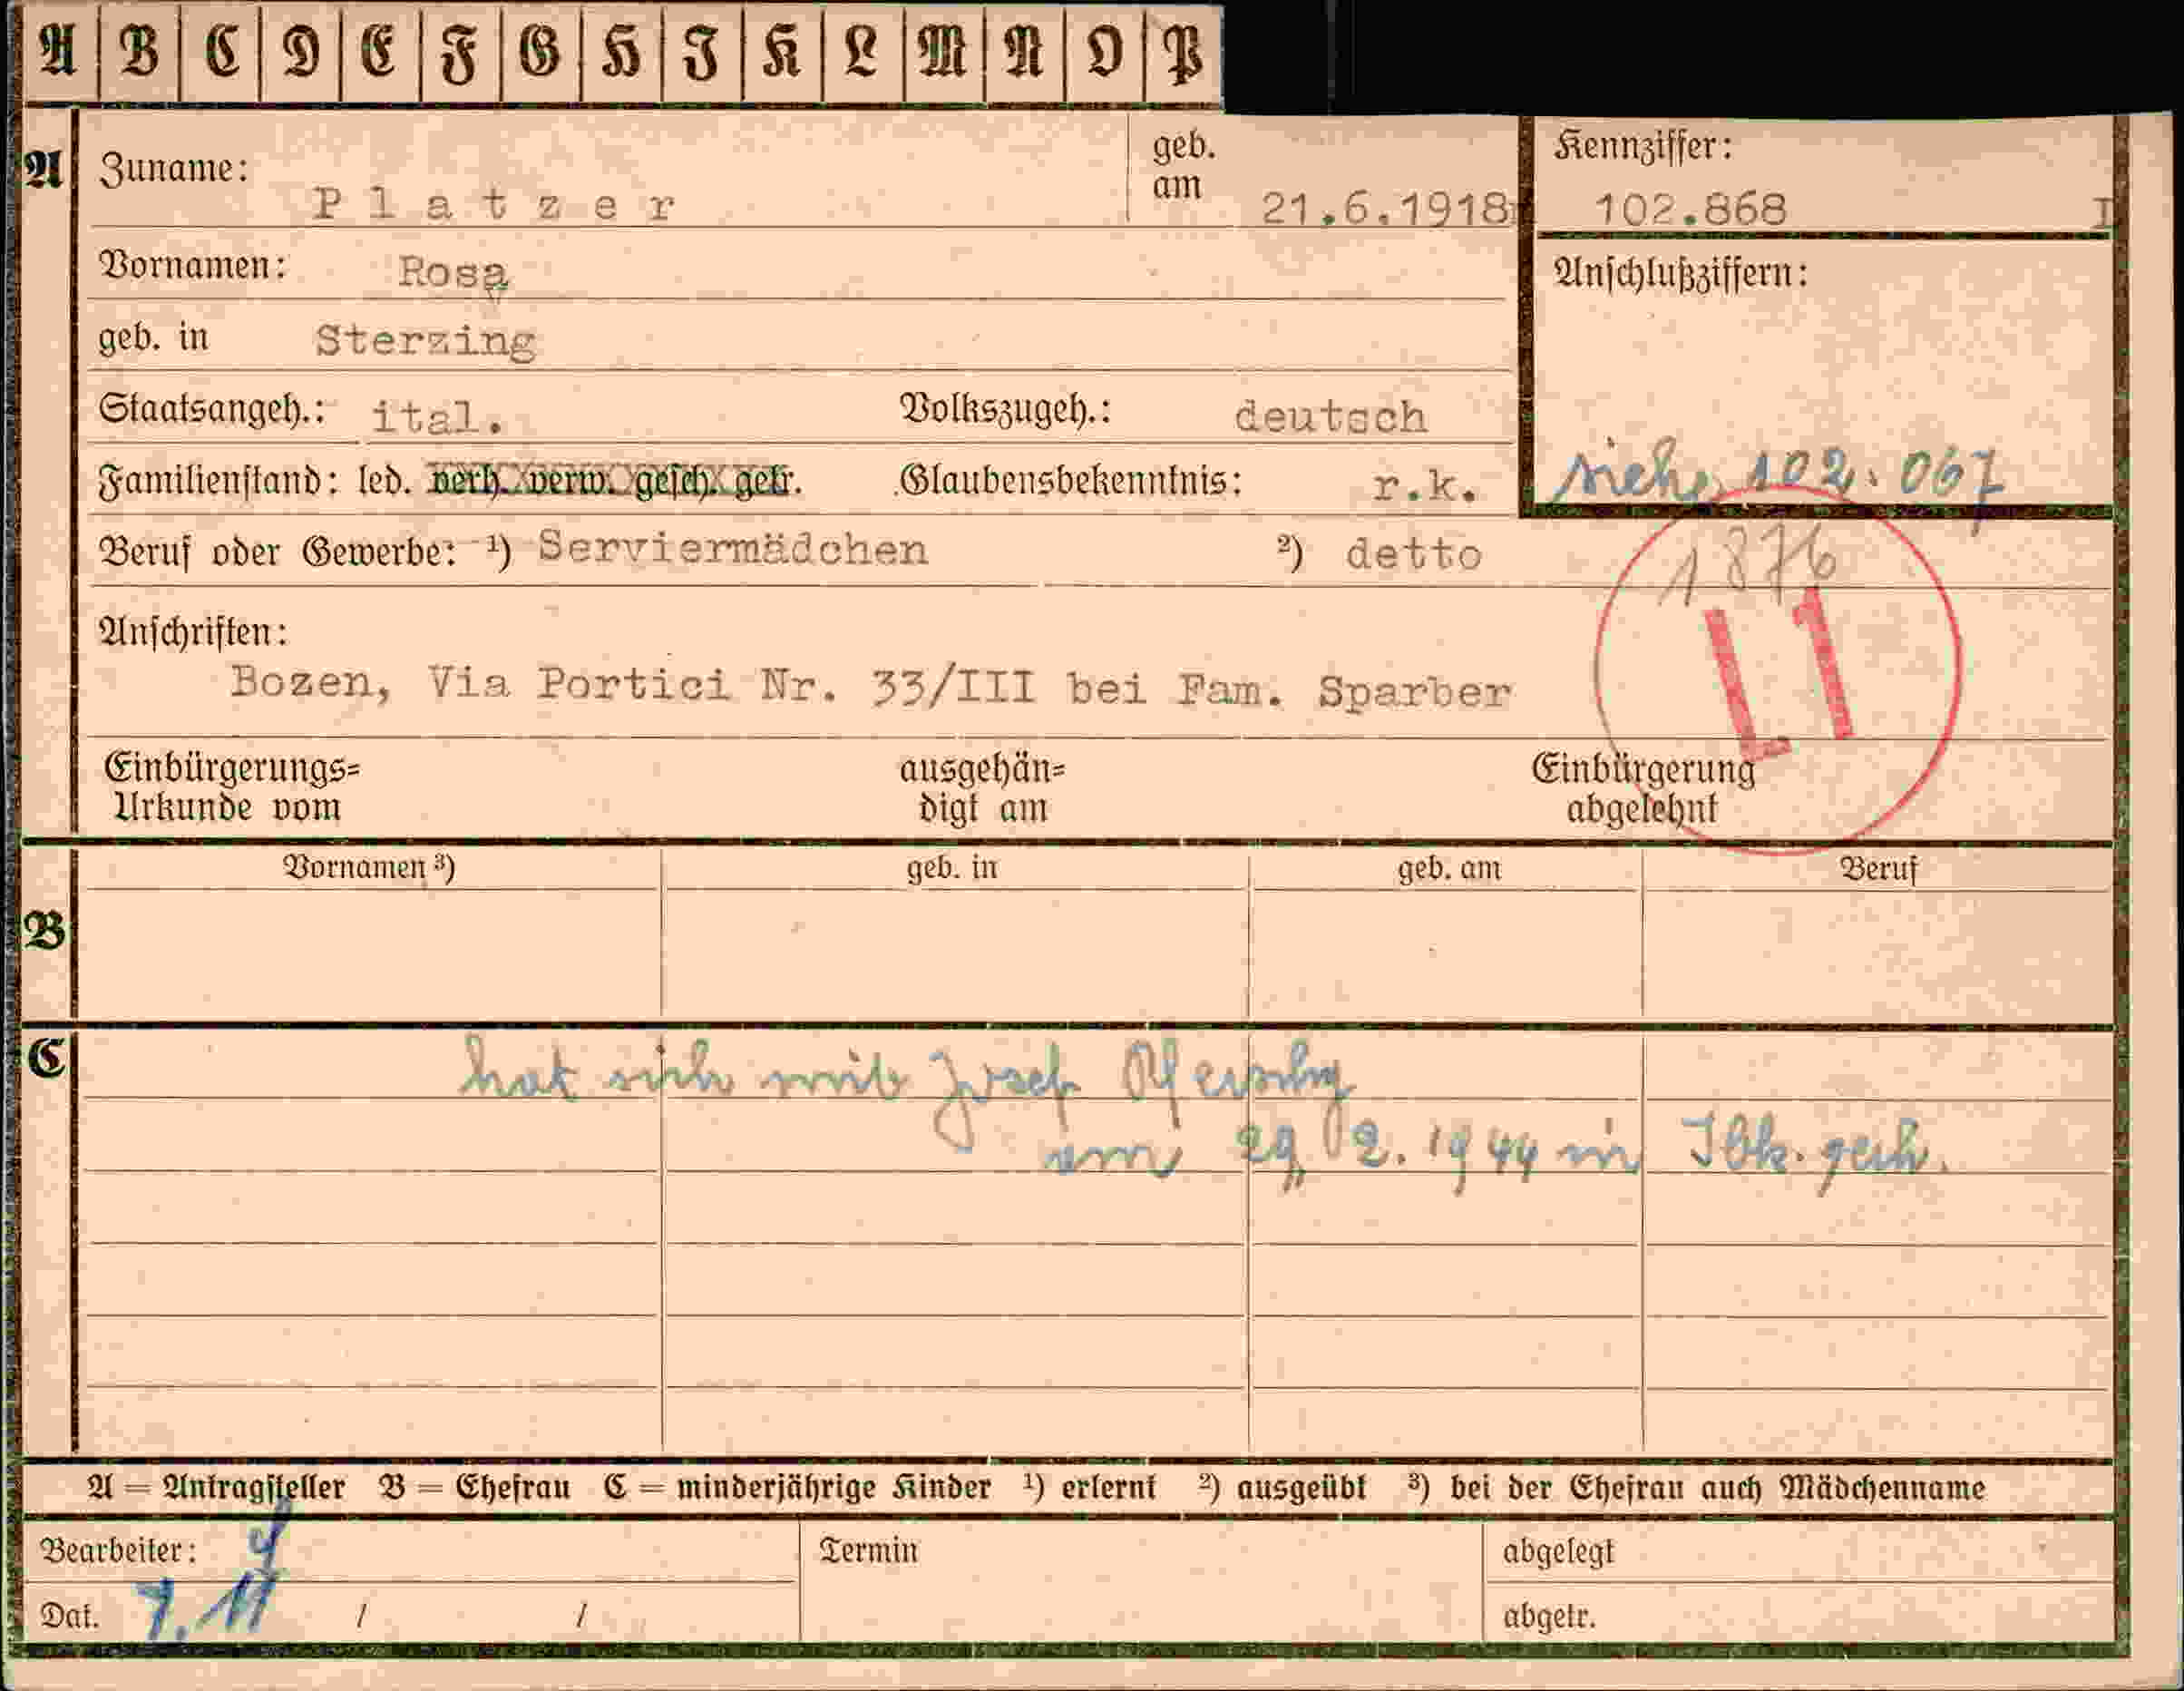 A B C D E F G H I K L M N O P
A Zuname: Platzer geb. am 21.6.1918 Kennziffer: 102.868 I
Vornamen: Rosa Anschlußziffern:
geb. in Sterzing
Staatsangeh.: ital. Volkszugeh.: deutsch
siehe 102.067
Familienstand: led. verh. verw. gesch. getr. Glaubensbekenntnis: r.k.
Beruf oder Gewerbe: ¹) Serviermädchen ²) detto
1876
L1
Anschriften:
Bozen, Via Portici Nr. 33/III bei Fam. Sparber
Einbürgerungs=Urkunde vom ausgehän=digt am Einbürgerung abgelehnt
Vornamen ³) geb. in geb. am Beruf
B
C hat sich mit Josef
am 29. 2. 1944 in Ibk.
A = Antragsteller B = Ehefrau C = minderjährige Kinder ¹) erlernt ²) ausgeübt ³) bei der Ehefrau auch Mädchenname
Bearbeiter: Termin abgelegt
Dat. 7.11 / / abgetr.